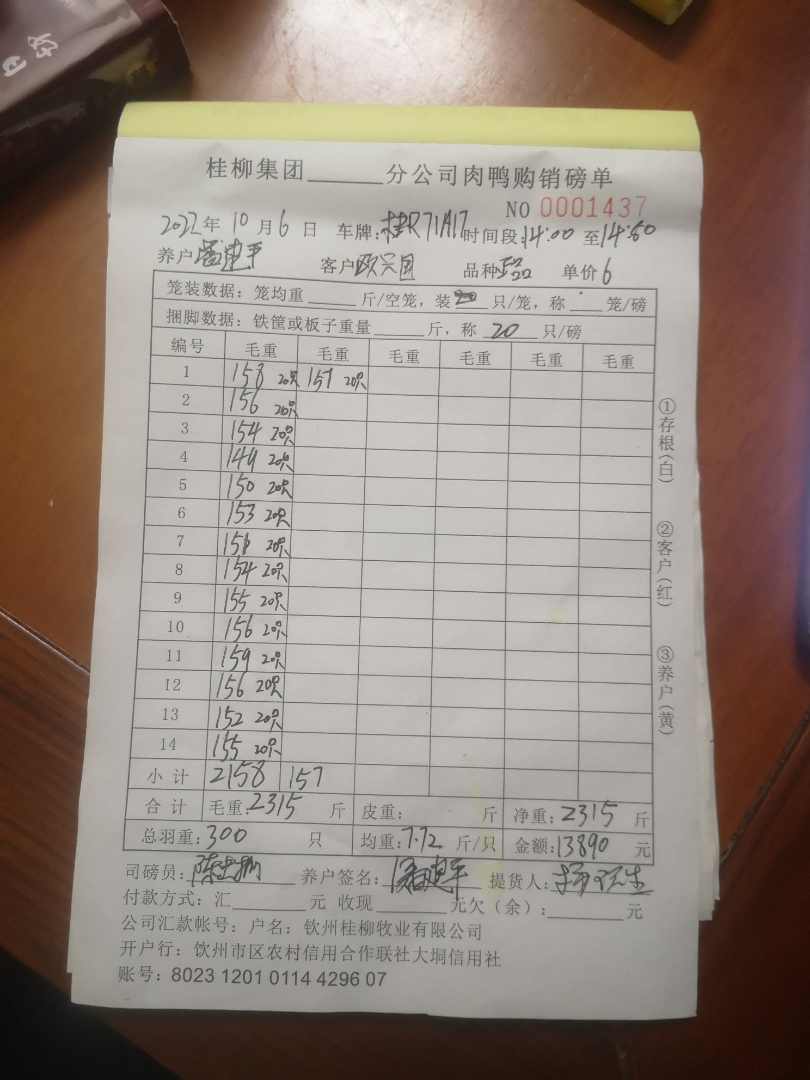 桂柳集团______分公司肉鸭购销磅单
NO 0001437
2022年 10 月 6 日 车牌:桂R71A17 时间段:14:00 至14:50
养户 客户 欧兴国 品种 单价 6
笼装数据: 笼均重 ____ 斤/空笼, 装 ____ 只/笼, 称 ____ 笼/磅
捆脚数据: 铁筐或板子重量 ____ 斤, 称 20 只/磅
编号 毛重 毛重 毛重 毛重 毛重 毛重
1 158 20只 157 20只
2 156 20只
3 154 20只
4 149 20只
5 150 20只
6 153 20只
7 151 20只
8 154 20只
9 155 20只
10 156 20只
11 159 20只
12 156 20只
13 152 20只
14 155 20只
小计 2158 157
合计 毛重:2315 斤 皮重: 斤 净重:2315 斤
总羽重:300 只 均重:7.72 斤/只 金额:13890 元
司磅员: 养户签名: 提货人:
付款方式: 汇______元 收现______元欠(余):______元
公司汇款帐号: 户名: 钦州桂柳牧业有限公司
开户行: 钦州市区农村信用合作联社大垌信用社
账号: 8023 1201 0114 4296 07
①存根(白)
②客户(红)
③养户(黄)